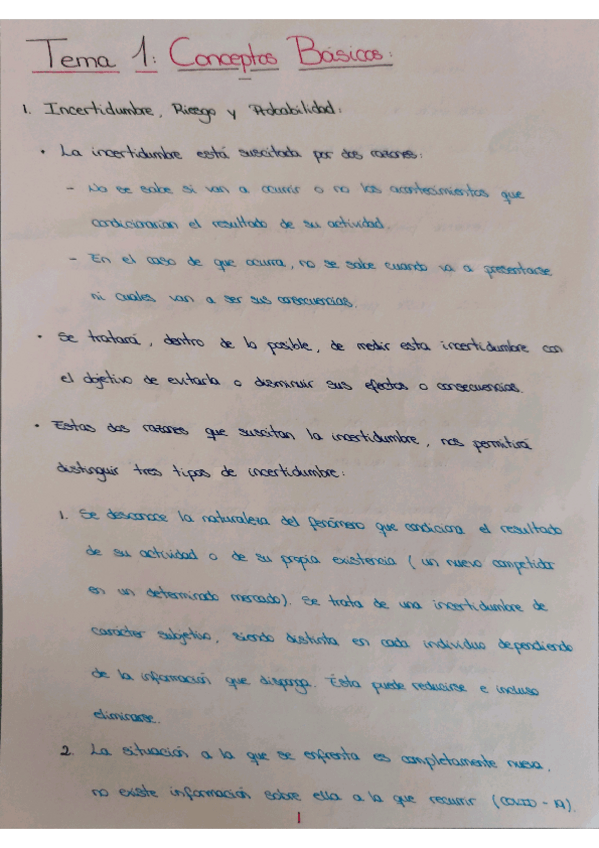 Tema 1: Conceptos Básicos:
1. Incertidumbre, Riesgo y Probabilidad:
• La incertidumbre está suscitada por dos razones:
- No se sabe si van a ocurrir o no los acontecimientos que
condicionarían el resultado de su actividad.
- En el caso de que ocurra, no se sabe cuando va a presentarse
ni cuales van a ser sus consecuencias.
• Se tratará, dentro de lo posible, de medir esta incertidumbre con
el objetivo de evitarla o disminuir sus efectos o consecuencias.
• Estas dos razones que suscitan la incertidumbre, nos permitirá
distinguir tres tipos de incertidumbre:
1. Se desconoce la naturaleza del fenómero que condiciona el resultado
de su actividad o de su propia existencia (un nuevo competidor
en un determinado mercado). Se trata de una incertidumbre de
carácter subjetivo, siendo distinta en cada individuo dependiendo
de la información que disponga. Ésta puede reducirse e incluso
eliminarse.
2. La situación a la que se enfrenta es completamente nueva,
no existe información sobre ella a la que recurrir (COVID-19).
1